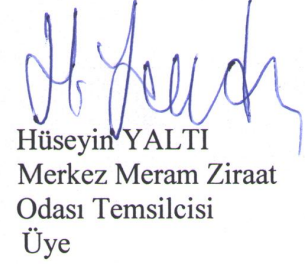 Hüseyin YALTI
Merkez Meram Ziraat
Odası Temsilcisi
Üye